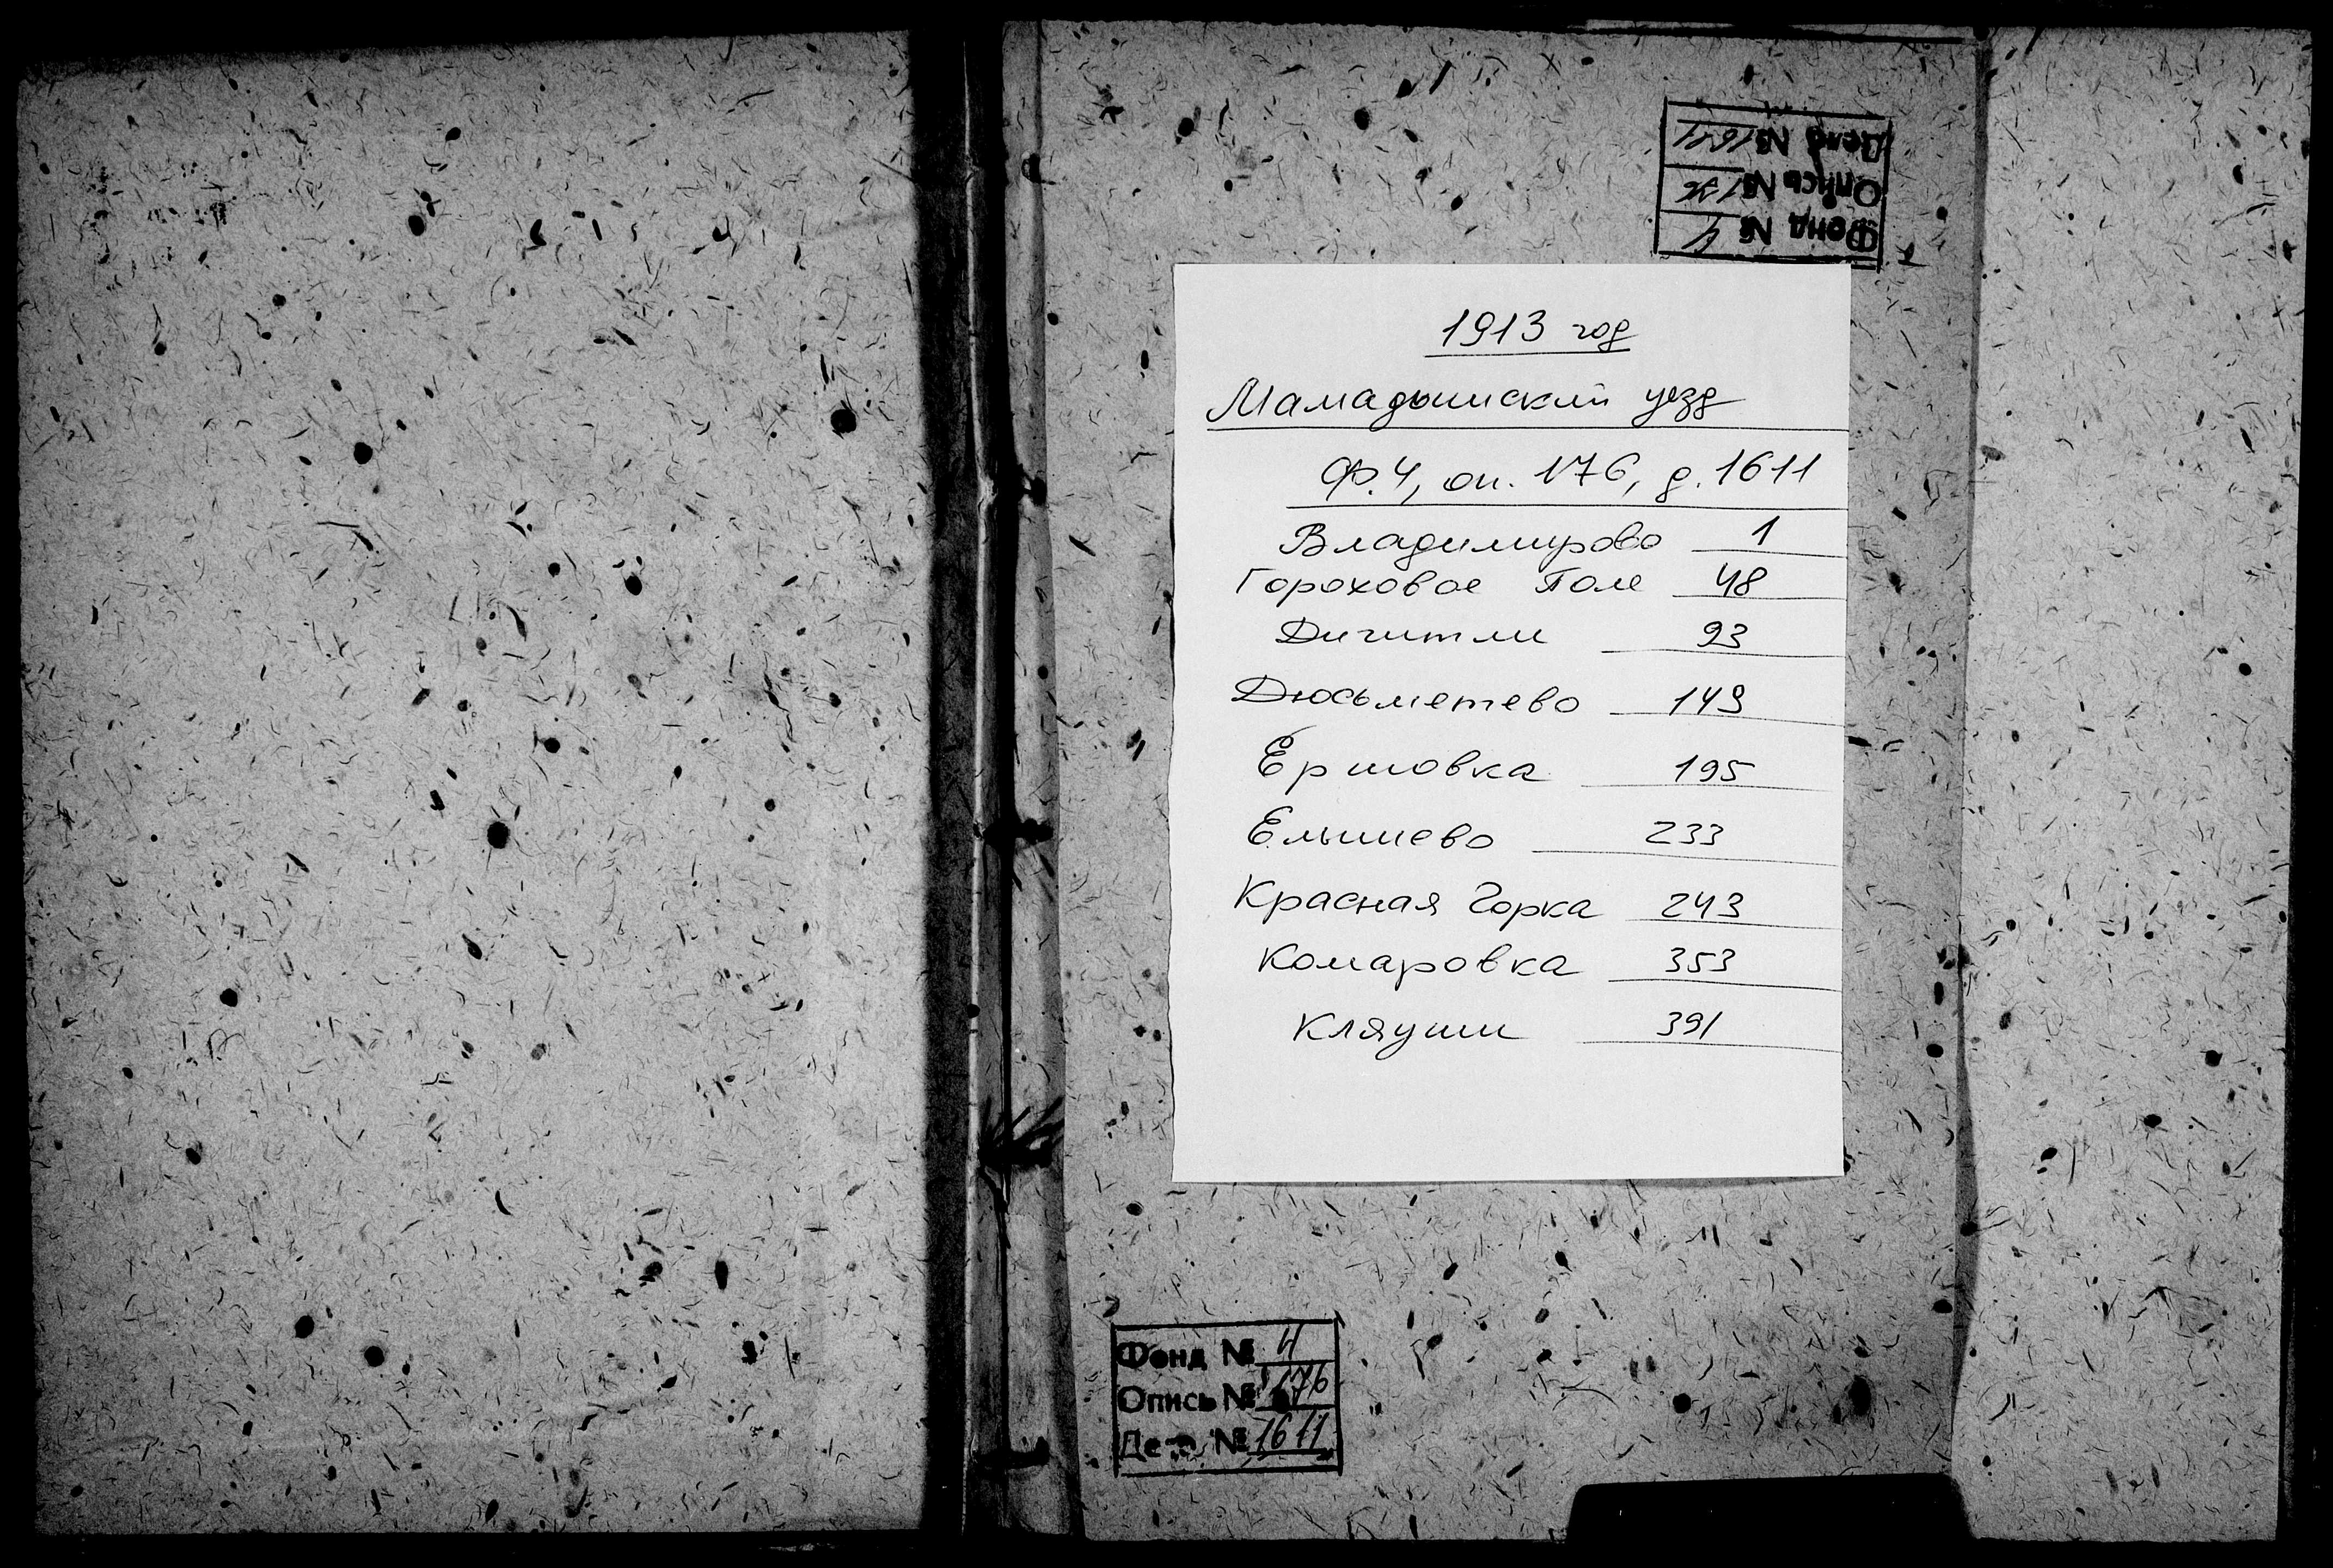 Дело № 1611
Опись № 176
Фонд № 4
1913 год
Мамадышский уезд
Ф.4, оп. 176, д. 1611
Владимирово 1
Гороховое Поле 48
Дигитли 93
Дюсьметево 149
Ершовка 195
Елышево 233
Красная Горка 243
Комаровка 353
Кляуши 391
Фонд № 4
Опись № 176
Дело № 1611